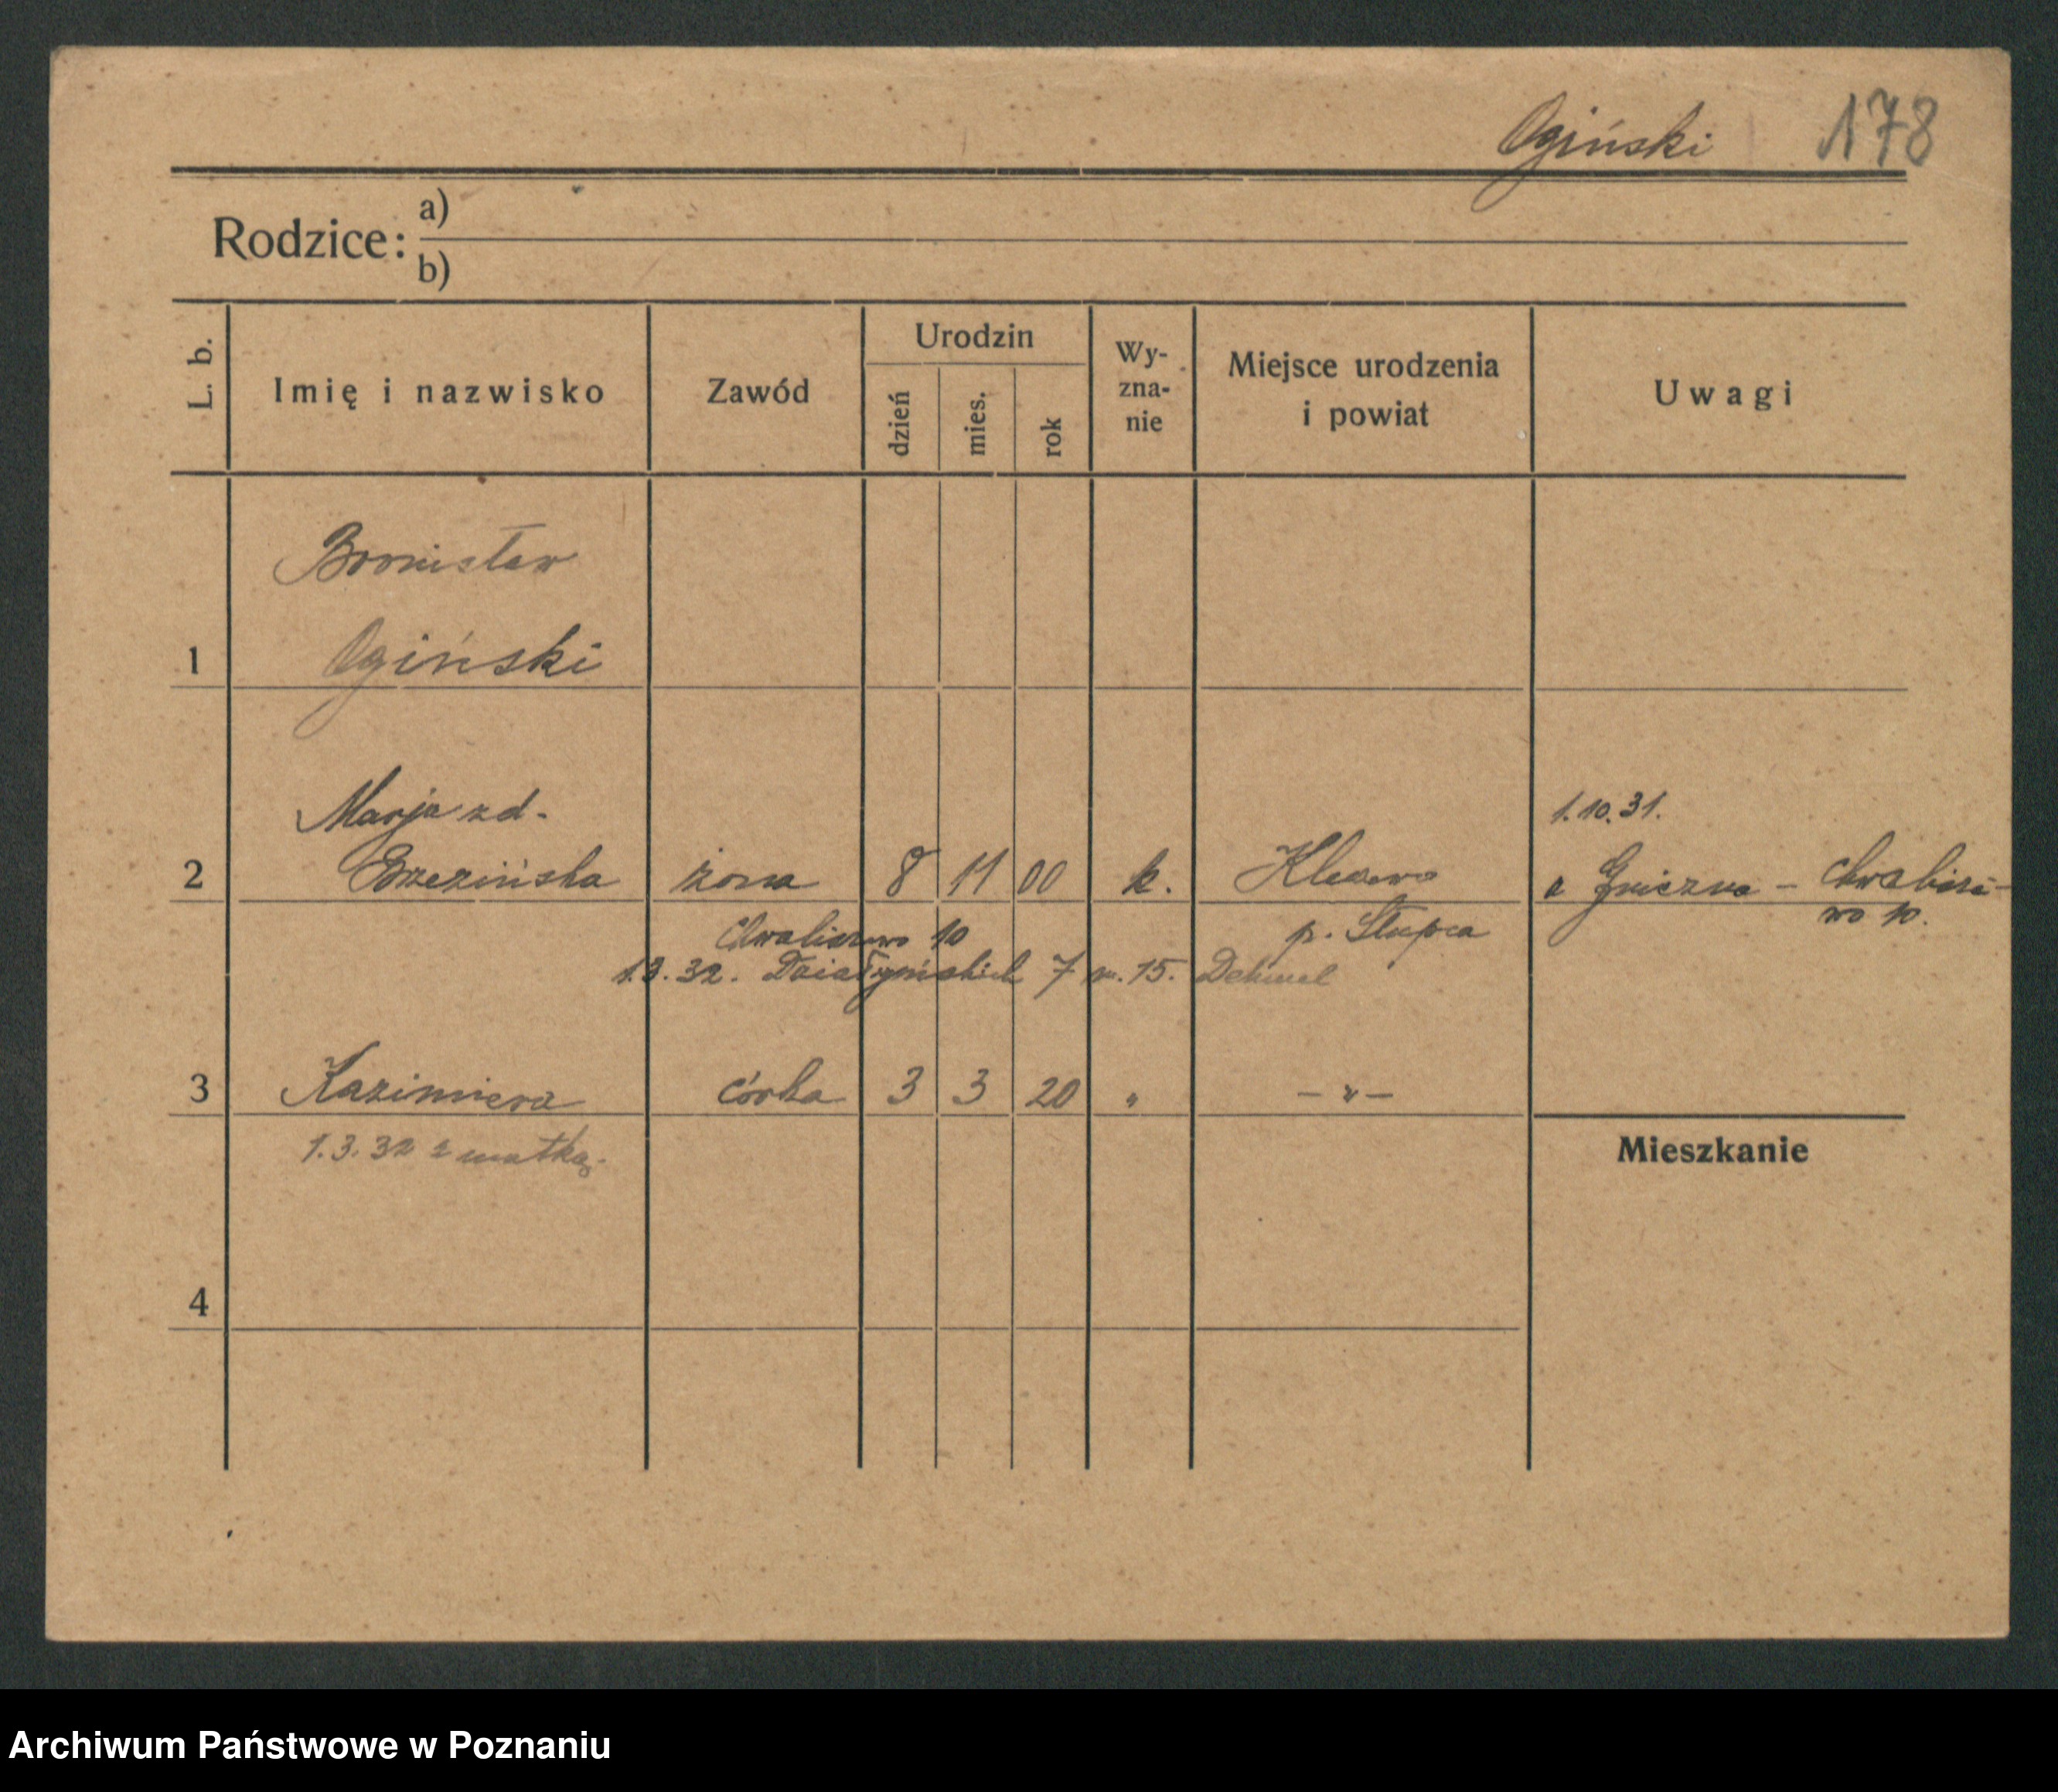 Ogiński 178
Rodzice: a)
b)
L. b. Imię i nazwisko Zawód Urodzin dzień mies. rok Wy-zna-nie Miejsce urodzenia i powiat Uwagi
Bronisław
1 Ogiński
Marja zd. 1.10.31.
2 Brzezińska żona 8 11 00 k. z Gniezna – Chwalisze-
Chwaliszewo 10 p. Słupca wo 10.
1.3.32. Działyńskich 7 m. 15.
3 Kazimiera córka 3 3 20 " — " —
1.3.32 z matką. Mieszkanie
4
Archiwum Państwowe w Poznaniu